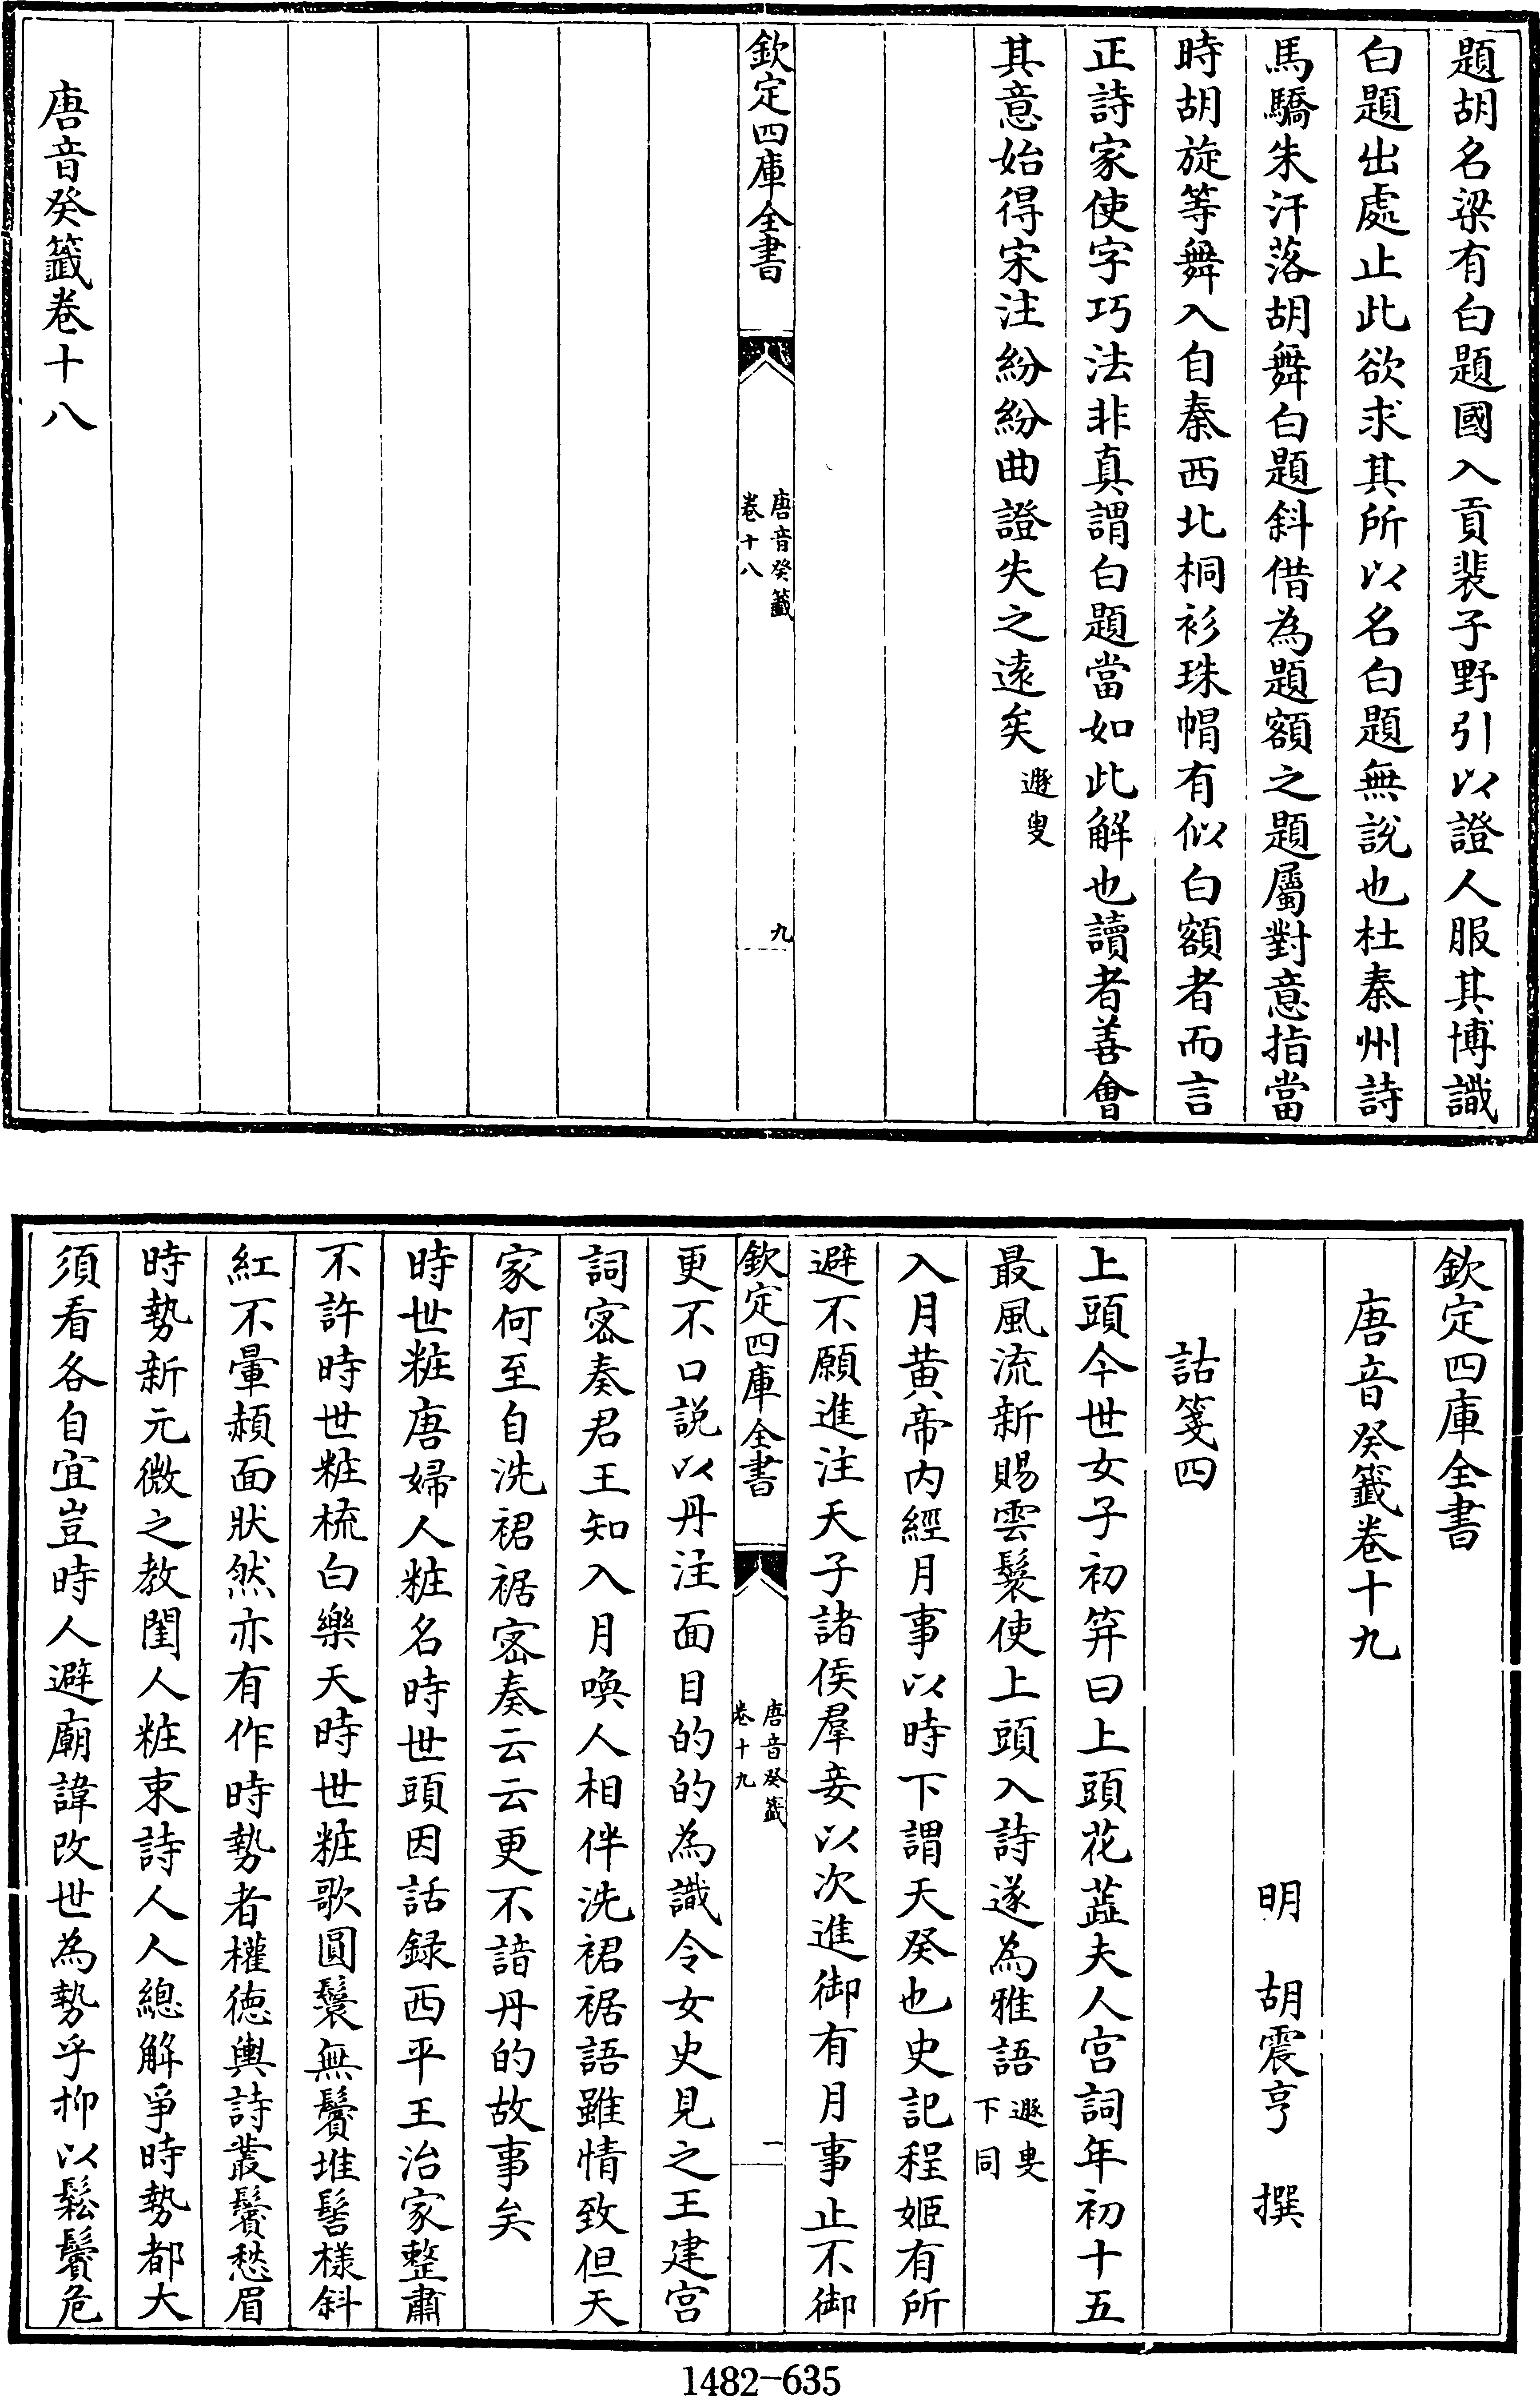 題胡名梁有白題國入貢裴子野引以證人服其博識
白題出處止此欲求其所以名白題無說也杜秦州詩
馬驕朱汗落胡舞白題斜借為題額之題屬對意指當
時胡旋等舞入自秦西北桐衫珠帽有似白額者而言
正詩家使字巧法非真謂白題當如此解也讀者善會
其意始得宋注紛紛曲證失之遠矣遯叟
欽定四庫全書
唐音癸籤
卷十八
九
唐音癸籤卷十八
欽定四庫全書
唐音癸籤卷十九
明 胡震亨 撰
詁箋四
上頭今世女子初笄曰上頭花蘂夫人宮詞年初十五
最風流新賜雲鬟使上頭入詩遂為雅語遯叟下同
入月黃帝內經月事以時下謂天癸也史記程姬有所
避不願進注天子諸侯羣妾以次進御有月事止不御
欽定四庫全書
唐音癸籤
卷十九
一
更不口說以丹注面目的的為識令女史見之王建宮
詞密奏君王知入月喚人相伴洗裙裾語雖情致但天
家何至自洗裙裾密奏云云更不諳丹的故事矣
時世粧唐婦人粧名時世頭因話録西平王治家整肅
不許時世粧梳白樂天時世粧歌圓鬟無鬢堆髻様斜
紅不暈頳面狀然亦有作時勢者權德輿詩叢鬢愁眉
時勢新元微之教閨人粧束詩人人總解爭時勢都大
須看各自宜豈時人避廟諱改世為勢乎抑以鬆鬢危
1482-635